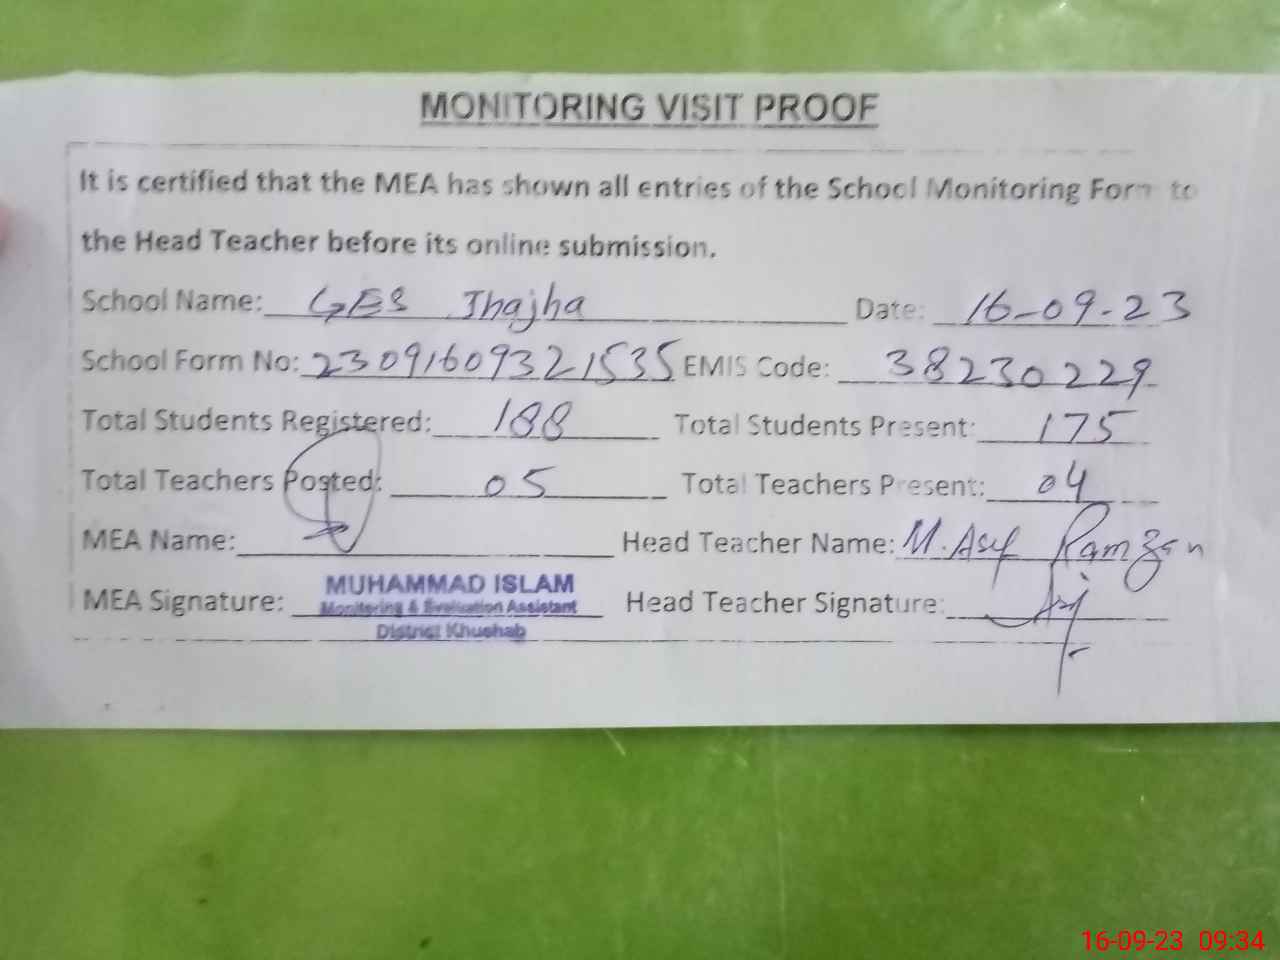 MONITORING VISIT PROOF
It is certified that the MEA has shown all entries of the School Monitoring Form to
the Head Teacher before its online submission.
School Name: GES Jhajha Date: 16-09-23
School Form No: 23091609321535 EMIS Code: 38230229
Total Students Registered: 188 Total Students Present: 175
Total Teachers Posted: 05 Total Teachers Present: 04
MEA Name: Head Teacher Name: M. Asif Ramzan
MEA Signature: MUHAMMAD ISLAM Head Teacher Signature: Asif
Monitoring & Evaluation Assistant
District Khushab
16-09-23 09:34